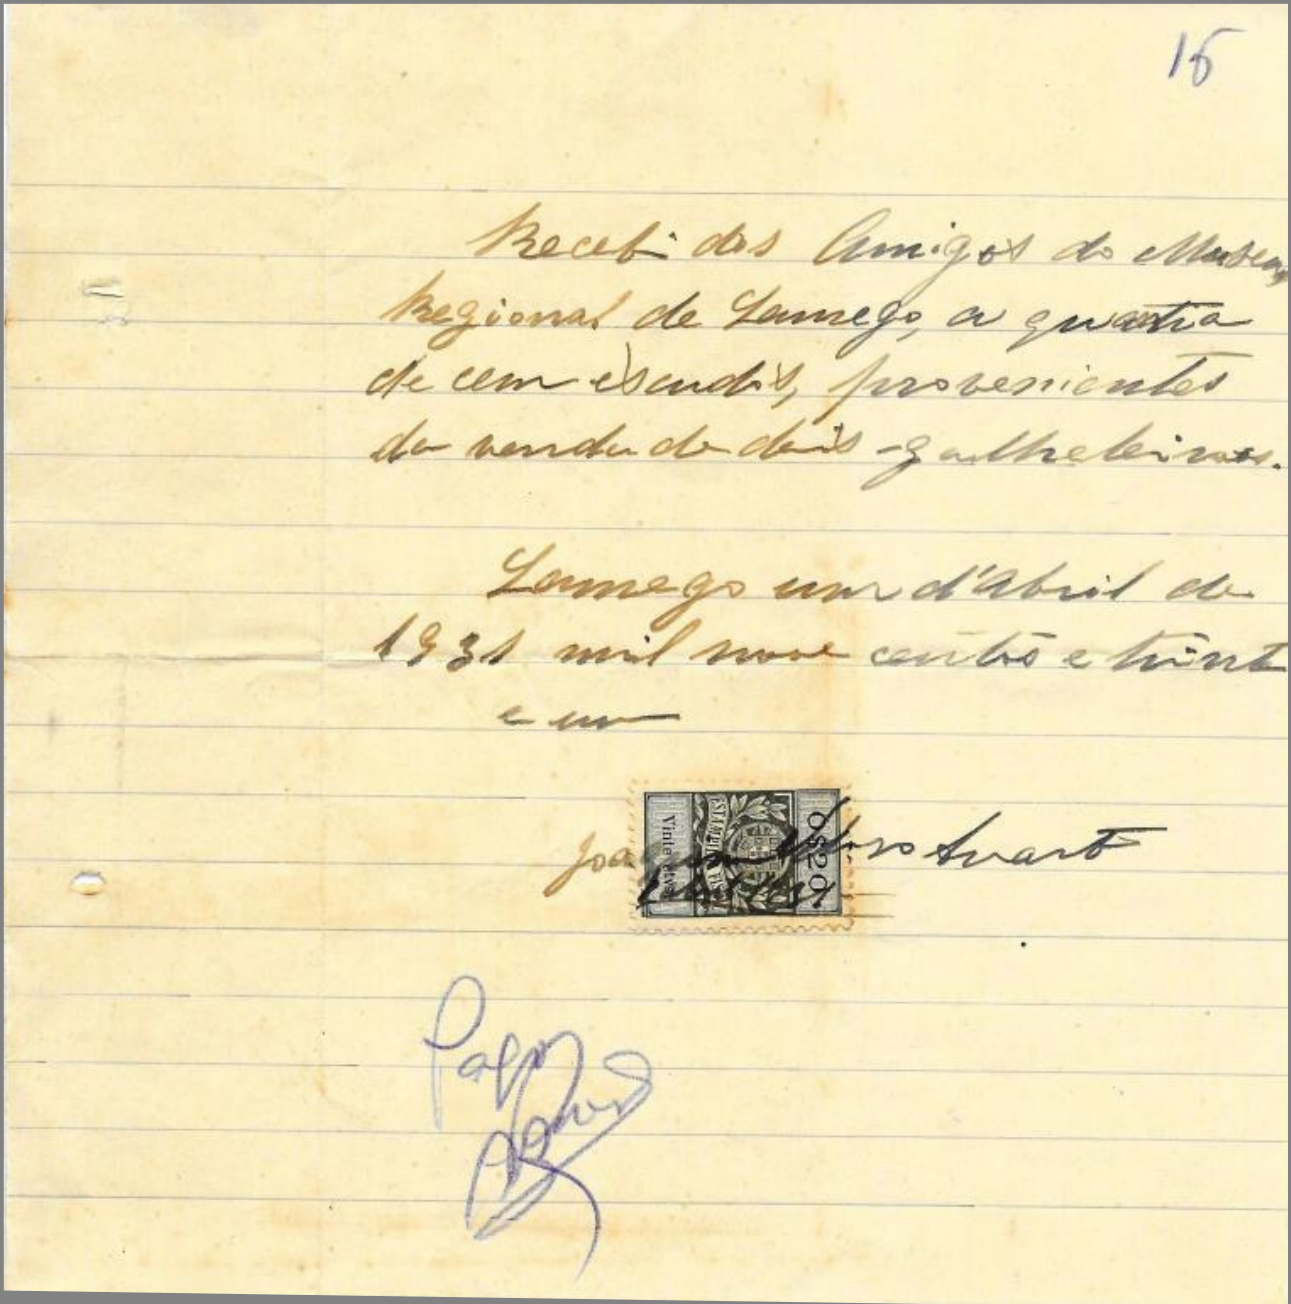 15
Recebi dos Amigos do Museu
Regional de Lamego, a quantia
de cem escudos, provenientes
da venda de dois galheteiros.
Lamego um d'Abril de
1931 mil nove centos e trint
e um
0$20
ESTAMPILHA FISCAL
Vinte
Joaquim Duarte
Pago